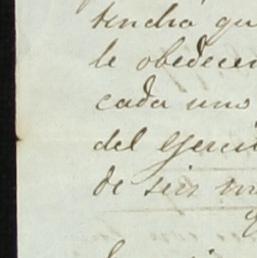 tendra qu
le obedecer
cada uno
del egerci
de seis m